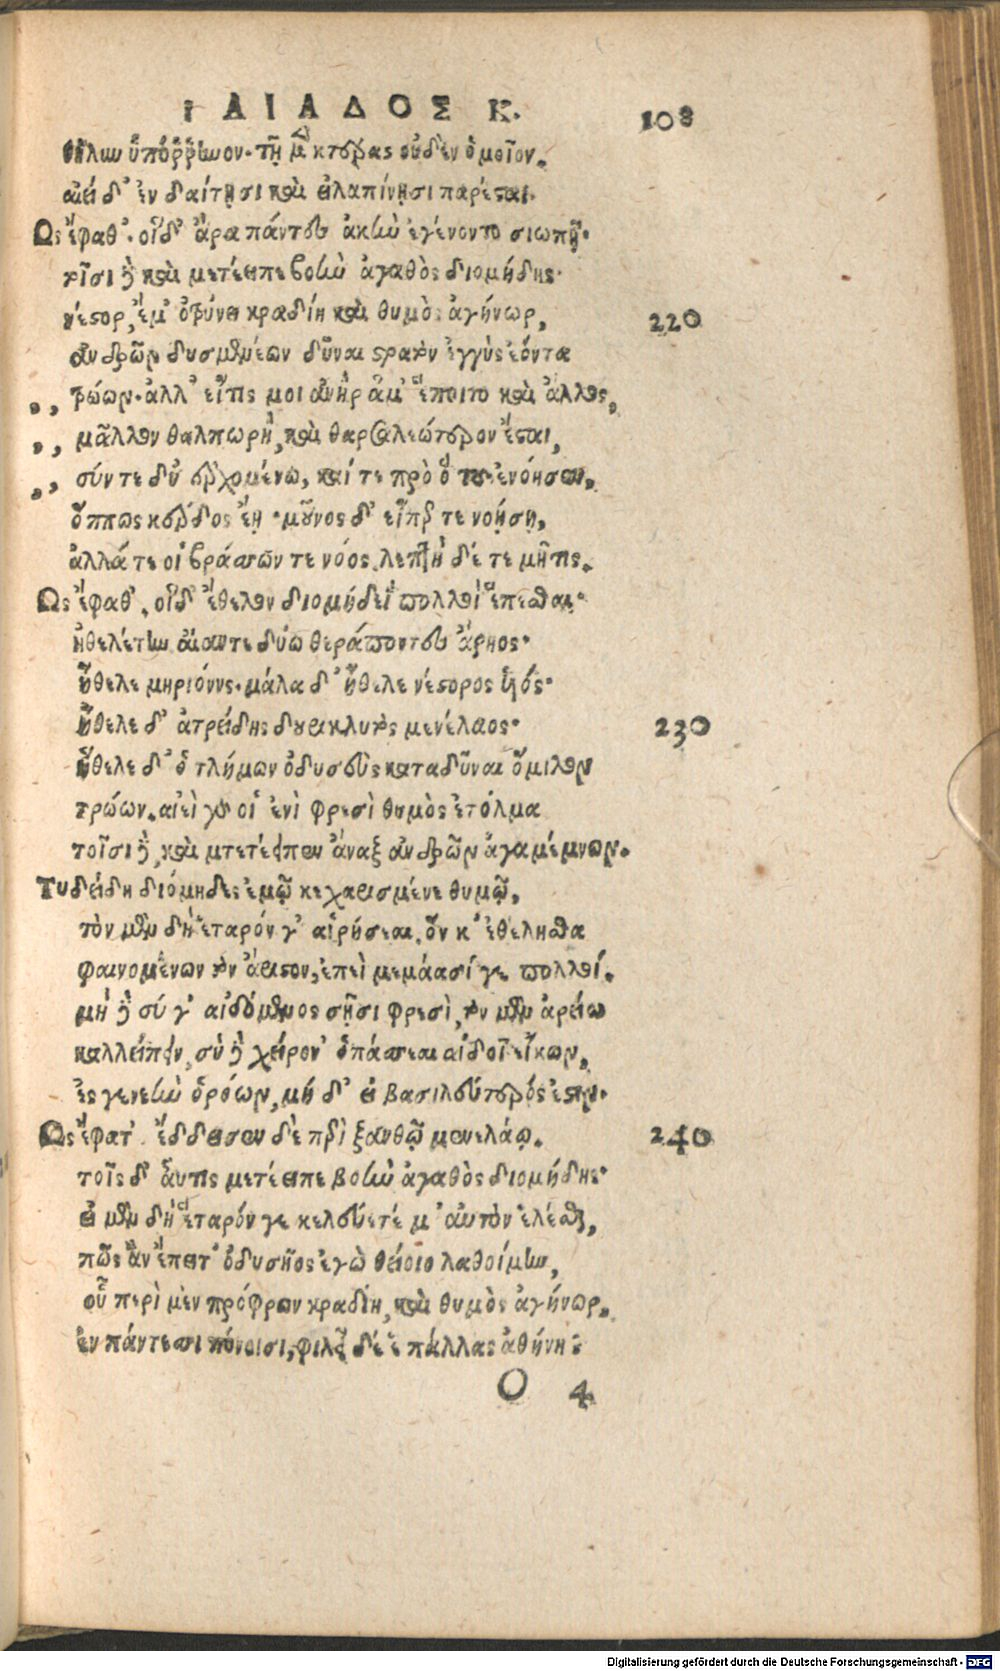 ΙΛΙΑΔΟΣ Κ. 108
θῆλυν ὑπόῤῥηνον. τῇ μὲν κτέρας οὐδὲν ὁμοῖον.
αἰεὶ δ' ἐν δαίτῃσι καὶ εἰλαπίνῃσι παρέσται.
Ως ἔφαθ'. οἱ δ' ἄρα πάντες ἀκὴν ἐγένοντο σιωπῇ.
τοῖσι δὲ καὶ μετέειπε βοὴν ἀγαθὸς διομήδης.
νέστορ, ἔμ' ὀτρύνει κραδίη καὶ θυμὸς ἀγήνωρ, 220
ἀνδρῶν δυσμενέων δῦναι στρατὸν ἐγγὺς ἐόντα
,, τρώων. ἀλλ' εἴτις μοι ἀνὴρ ἅμ' ἕποιτο καὶ ἄλλος,
,, μᾶλλον θαλπωρὴ, καὶ θαρσαλεώτερον ἔσται,
,, σύν τε δύ' ἐρχομένω, καί τε πρὸ ὃ τοῦ ἐνόησεν,
ὅππως κέρδος ἔῃ. μοῦνος δ' εἴπερ τε νοήσῃ,
ἀλλά τε οἱ βράσσων τε νόος, λεπτὴ δέ τε μῆτις.
Ως ἔφαθ'. οἱ δ' ἔθελον διομήδεϊ πολλοὶ ἕπεσθαι.
ἠθελέτην αἴαντε δύω θεράποντες ἄρηος.
ἤθελε μηριόνης. μάλα δ' ἤθελε νέστορος ὑιός.
ἤθελε δ' ἀτρείδης δουρικλυτὸς μενέλαος. 230
ἤθελε δ' ὁ τλήμων ὀδυσεὺς καταδῦναι ὅμιλον
τρώων. αἰεὶ γάρ οἱ ἐνὶ φρεσὶ θυμὸς ἐτόλμα
τοῖσι δὲ καὶ μτετέειπεν ἄναξ ἀνδρῶν ἀγαμέμνων.
Τυδείδη διόμηδες ἐμῷ κεχαρισμένε θυμῷ,
τὸν μὲν δὴ ἕταρόν γ' αἱρήσεαι, ὅν κ' ἐθέλησθα
φαινομένων τὸν ἄριστον, ἐπεὶ μεμάασί γε πολλοί.
μὴ δὲ σύ γ' αἰδόμενος σῇσι φρεσὶ, τὸν μὲν ἀρείω
καλλείπειν, σὺ δὲ χείρον' ὀπάσσεαι αἰδοῖ εἴκων,
ἐς γενεὴν ὁρόων, μή δ' εἰ βασιλεύτερός ἐστιν.
Ως ἔφατ'. ἔδδεισεν δὲ περὶ ξανθῷ μενελάῳ. 240
τοῖς δ' αὖτις μετέειπε βοὴν ἀγαθὸς διομήδης.
εἰ μὲν δὴ ἕταρόν γε κελεύετέ μ' αὐτὸν ἑλέσθαι,
πῶς ἂν ἔπειτ' ὀδυσῆος ἐγὼ θείοιο λαθοίμην,
οὗ περὶ μὲν πρόφρων κραδίη, καὶ θυμὸς ἀγήνωρ,
ἐν πάντεσσι πόνοισι, φιλεῖ δέ ἑ πάλλας ἀθήνη:
O 4
Digitalisierung gefördert durch die Deutsche Forschungsgemeinschaft - DFG